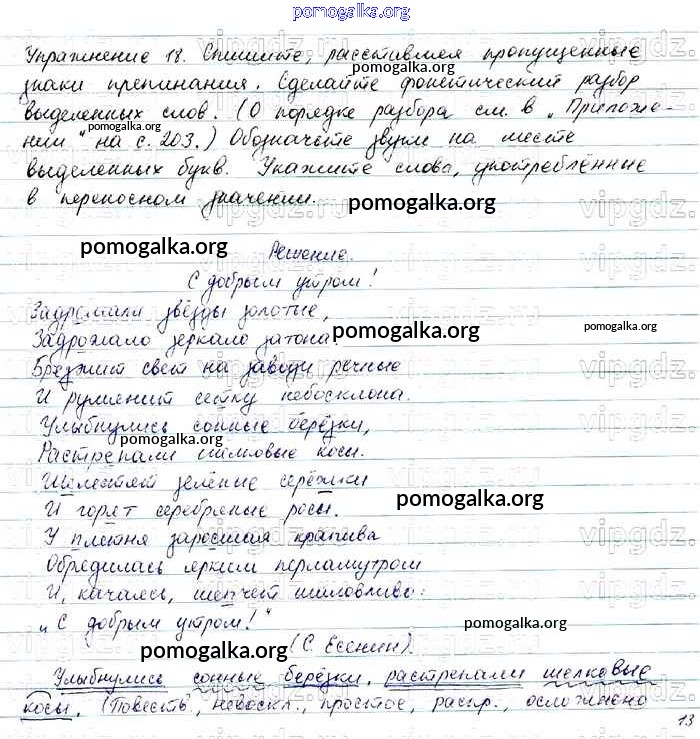 pomogalka.org
Упражнение 18. Спишите, расставляя пропущенные
знаки препинания. Сделайте фонетический разбор
pomogalka.org
выделенных слов. (О порядке разбора см. в „Приложе-
pomogalka.org
нии" на с. 203.) Обозначьте звуки на месте
выделенных букв. Укажите слова, употреблённые
в переносном значении.
pomogalka.org
pomogalka.org
Решение.
С добрым утром!
Задремали звёзды золотые,
Задрожало зеркало затона,
pomogalka.org
pomogalka.org
Брезжит свет на заводи речные
И румянит сетку небосклона.
Улыбнулись сонные берёзки,
pomogalka.org
Растрепали шёлковые косы.
Шелестят зелёные серёжки
И горят серебряные росы.
pomogalka.org
У плетня заросшая крапива
Обрядилась ярким перламутром
И, качаясь, шепчет шаловливо:
„С добрым утром!"
pomogalka.org
pomogalka.org
(С. Есенин).
Улыбнулись сонные берёзки, растрепали шелковые
косы. (Повеств., невоскл., простое, распр., осложнено
13
vipgdz.ru